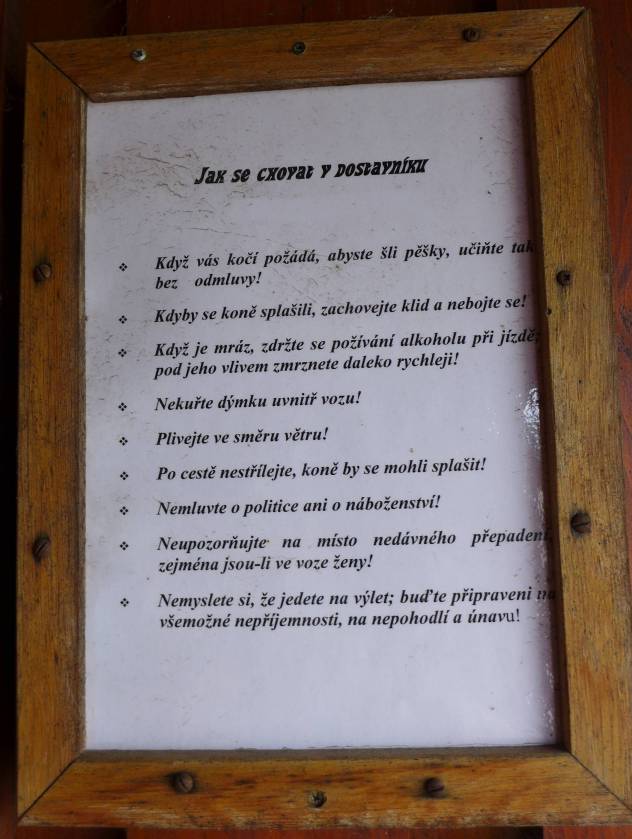 Jak se chovat v dostavníku
❖ Když vás kočí požádá, abyste šli pěšky, učiňte tak
bez odmluvy!
❖ Kdyby se koně splašili, zachovejte klid a nebojte se!
❖ Když je mráz, zdržte se požívání alkoholu při jízdě;
pod jeho vlivem zmrznete daleko rychleji!
❖ Nekuřte dýmku uvnitř vozu!
❖ Plivejte ve směru větru!
❖ Po cestě nestřílejte, koně by se mohli splašit!
❖ Nemluvte o politice ani o náboženství!
❖ Neupozorňujte na místo nedávného přepadení,
zejména jsou-li ve voze ženy!
❖ Nemyslete si, že jedete na výlet; buďte připraveni na
všemožné nepříjemnosti, na nepohodlí a únavu!